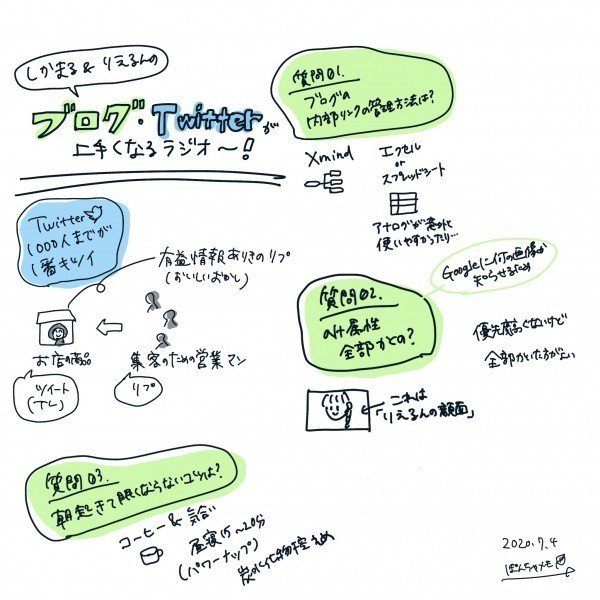 しかまる & りえるんの
ブログ・Twitterが
上手くなるラジオ〜！
Twitter
1000人までが
1番キツイ
有益情報ありきのリプ
(おいしいおかし)
お店の商品
集客のための営業マン
ツイート
(TL)
リプ
質問01.
ブログの
内部リンクの管理方法は?
Xmind
エクセル
or
スプレッドシート
アナログが意外と
使いやすかったり…
Googleに何の画像か
知らせるため
質問02.
alt属性
全部かくの?
優先度高くないけど
全部かいた方がいい
これは
「りえるんの顔面」
質問03.
朝起きて眠くならないコツは?
コーヒー & 気合い
昼寝15〜20分
(パワーナップ)
炭水化物控えめ
2020.7.4
ぽんちゃメモ